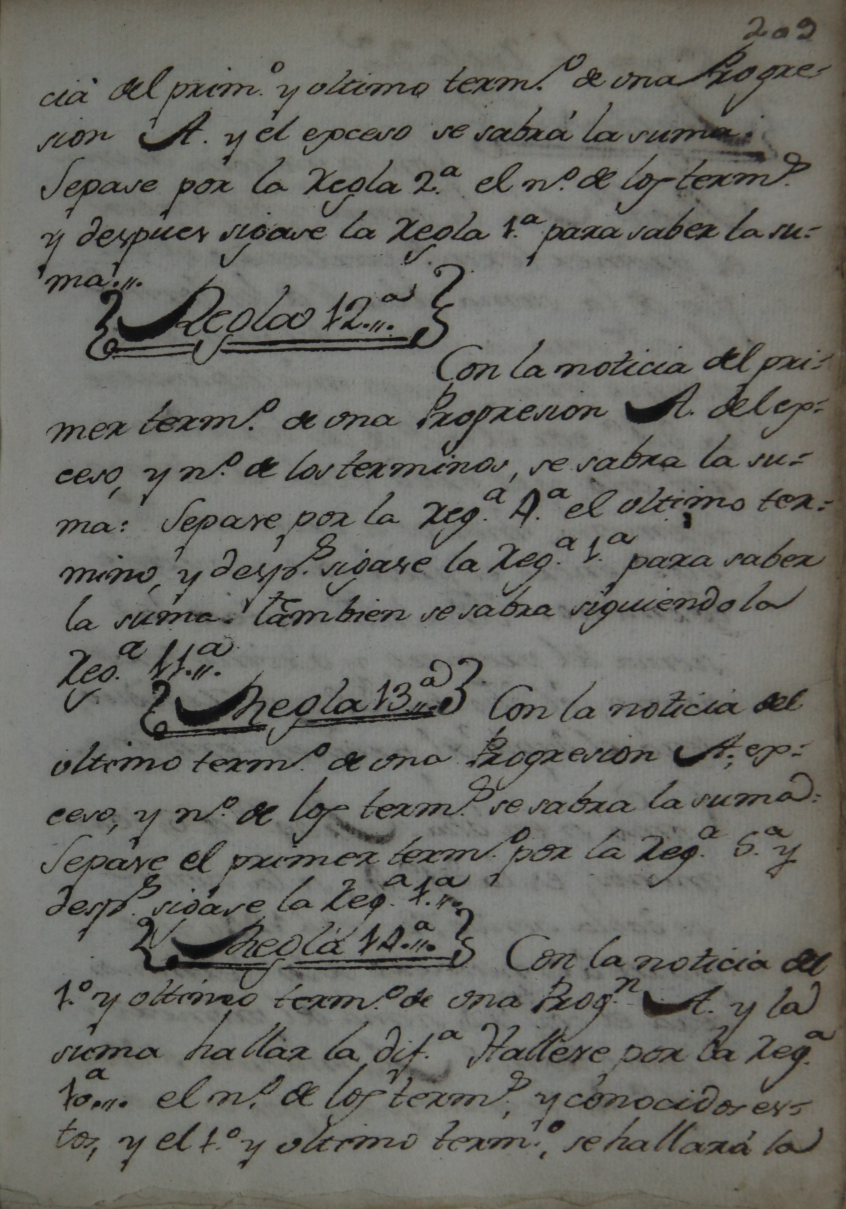 209
cia del prim.º y ultimo term.º de una Progre-
sion A. y el epceso se sabrá la suma:
Sepase por la Regla 2.ª el n.º de los term.s
y despues sigase la Regla 1.ª para saber la su-
ma.,,.
Regla 12.,,.ª
Con la noticia del pri-
mer term.º de una Progresion A. del ep-
ceso, y n.º de los terminos, se sabra la su-
ma: Sepase por la Reg.ª 4.ª el ultimo ter-
mino, y desp.s sigase la Reg.ª 1.ª para saber
la suma. tambien se sabra siguiendo la
Reg.ª 11.,,.ª
Regla 13.,,.ª Con la noticia del
ultimo term.º de una Progresion A. ep-
ceso, y n.º de los term.s se sabra la suma:
Sepase el primer term.º por la Reg.ª 5.ª y
desp.s sigase la Reg.ª 1.ª,,.
Regla 14.,,.ª Con la noticia del
1.º y ultimo term.º de una Prog.n A. y la
suma hallar la dif.ª Hallese por la Reg.ª
10.ª,,. el n.º de los term.s, y conocidos es-
tos, y el 1.º y ultimo term.º, se hallará la